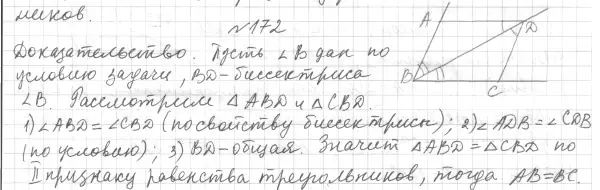 ников.
№172
A
D
Доказательство. Пусть ∠B дан по
условию задачи, BD-биссектриса
B
C
∠B. Рассмотрим △ABD и △CBD.
1) ∠ABD = ∠CBD (по свойству биссектрисы); 2) ∠ADB = ∠CDB
(по условию); 3) BD-общая. Значит △ABD = △CBD по
II признаку равенства треугольников, тогда AB=BC.